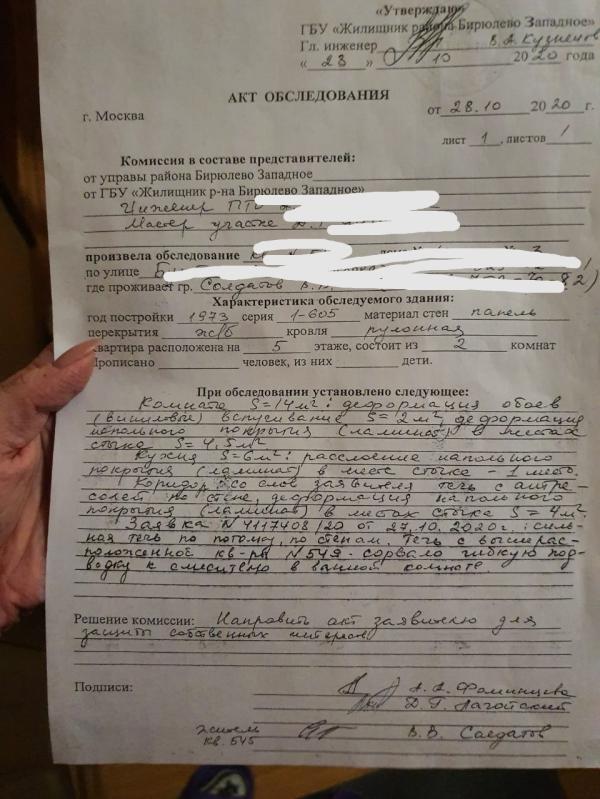 «Утверждаю»
ГБУ «Жилищник района Бирюлево Западное»
Гл. инженер В.А. Кузнецов
« 23 » 10 2020 года
АКТ ОБСЛЕДОВАНИЯ
г. Москва
от 28.10 2020 г.
лист 1, листов 1
Комиссия в составе представителей:
от управы района Бирюлево Западное
от ГБУ «Жилищник р-на Бирюлево Западное»
Инженер ПТО
Мастер участка
произвела обследование
по улице
где проживает гр. Солдатов В.
Характеристика обследуемого здания:
год постройки 1973 серия 1-605 материал стен панель
перекрытия ж/б кровля рулонная
квартира расположена на 5 этаже, состоит из 2 комнат
Прописано человек, из них дети.
При обследовании установлено следующее:
Комната S=14м²: деформация обоев
(виниловые) вспучивание S=2м² деформация
напольного покрытия (ламинат) в местах
стыка S=4,5м²
Кухня S=6м²: расслоение напольного
покрытия (ламинат) в месте стыка - 1 место.
Коридор: со слов заявителя течь с антре-
солей по стене, деформация напольного
покрытия (ламинат) в местах стыка S=4м².
Заявка N4117408/20 от 27.10.2020г.: силь-
ная течь по потолку, по стенам. Течь с вышерас-
положенное кв-ры N549 - сорвало гибкую под-
водку к смесителю в ванной комнате.
Решение комиссии: Направить акт заявителю для
защиты собственных интересов
Подписи:
А.А. Фоминцева
Д.Г. Лагойский
житель
кв. 545
В.В. Солдатов